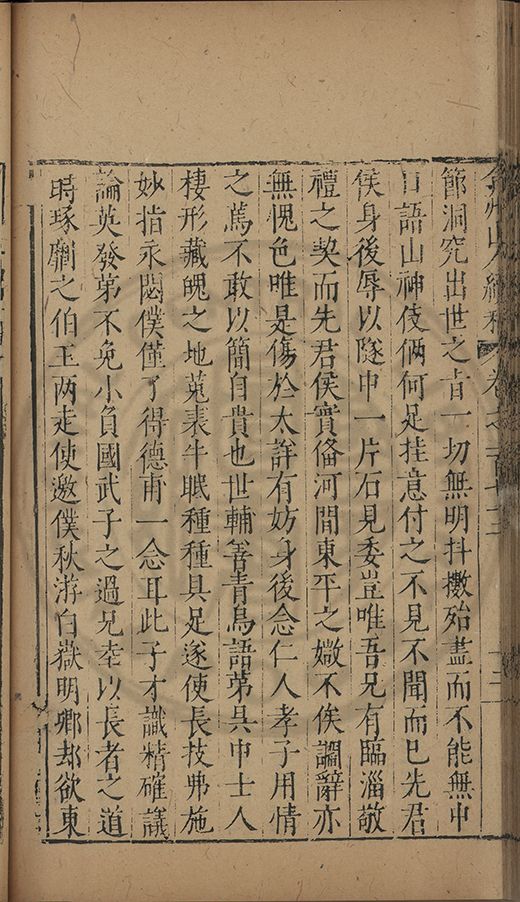 弇州山人續稿 卷之一百 十三
節洞究出世之旨一切無明抖擻殆盡而不能無中
口語山神伎倆何足挂意付之不見不聞而已先君
侯身後辱以隧中一片石見委豈唯吾兄有臨淄敬
禮之契而先君侯實俻河間東平之媺不俟讕辭亦
無愧色唯是傷於太詳有妨身後念仁人孝子用情
之萬不敢以簡自貴也世輔善青烏語第具中士人
棲形藏魄之地菟裘牛眠種種具足遂使長技弗施
妙指永閟僕僅了得德甫一念耳此子才識精確議
論英發第不免小負國武子之過兄幸以長者之道
時琢劘之伯玉兩走使邀僕秋游白嶽明卿却欲東